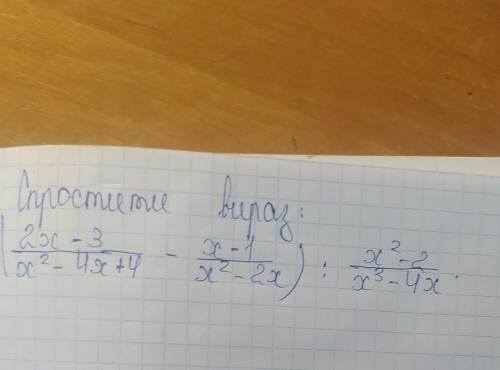 Спростити вираз:
(2x - 3 / x² - 4x + 4 - x - 1 / x² - 2x) : x² - 2 / x³ - 4x.